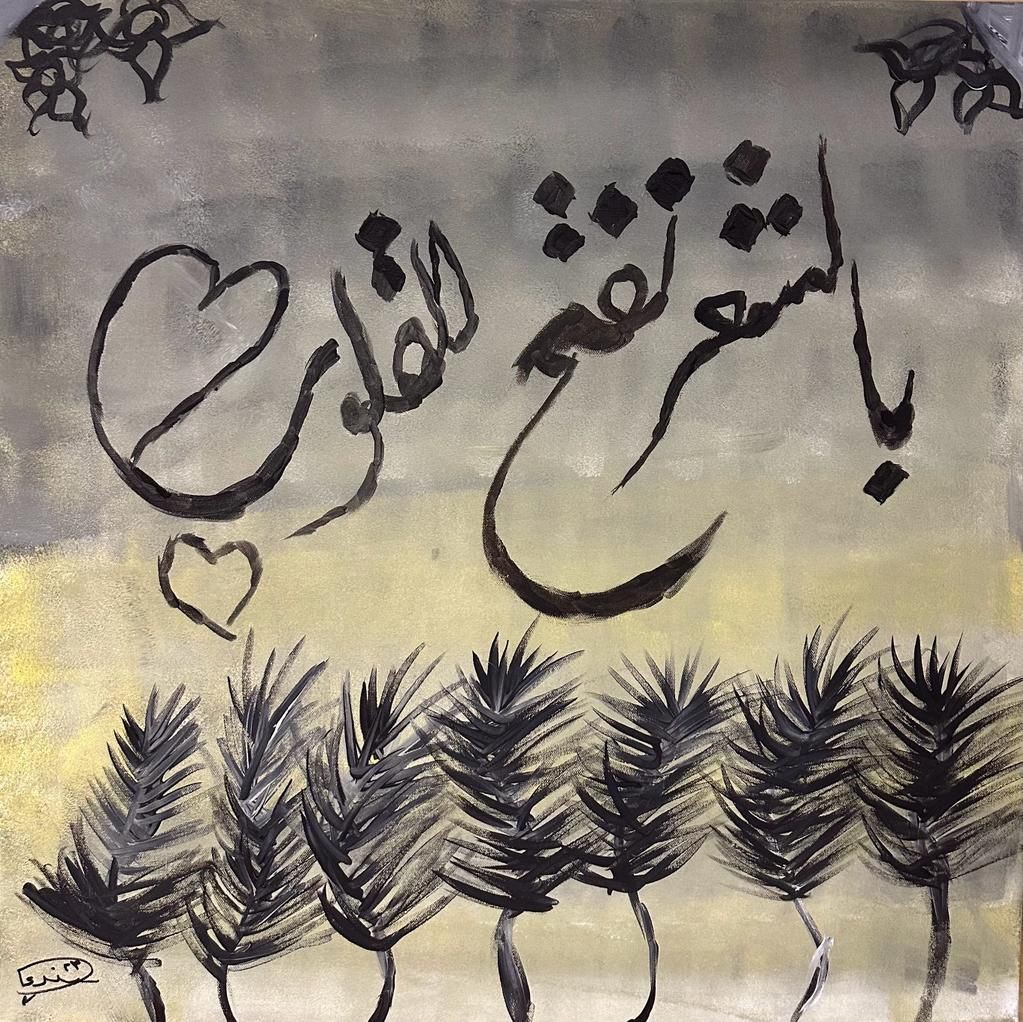 بالشعر تفتح القلوب